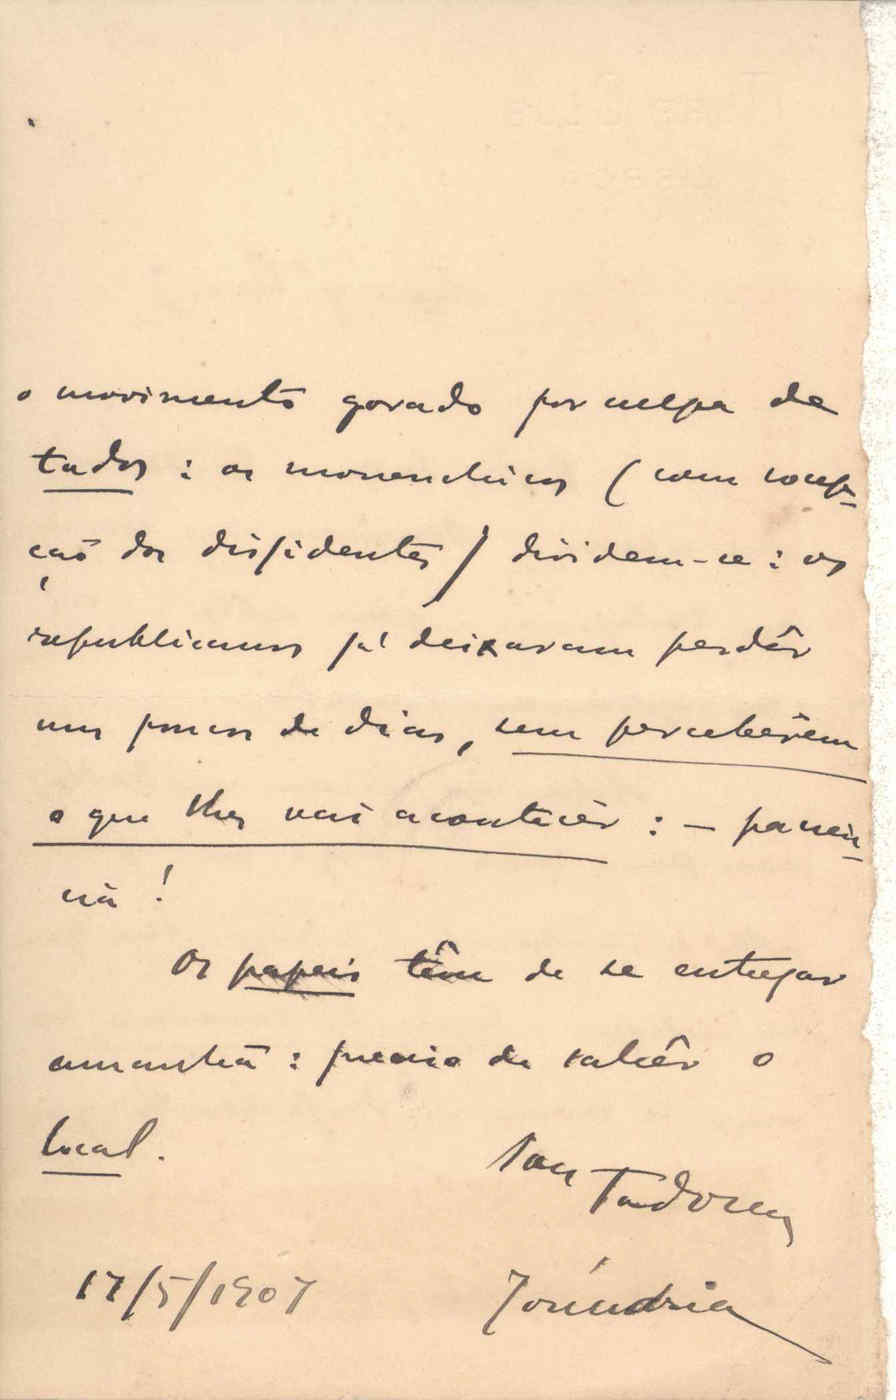 o movimento gorado por culpa de
todos : os monarchicos ( com excep-
ção dos dissidentes ) dividem-se : os
republicanos já deixaram perdêr
uns poucos de dias, sem percebêrem
o que lhes vai acontecêr : —
Os papeis têm de se entregar
amanhã : preciso de sabêr o
local.
17/5/1907